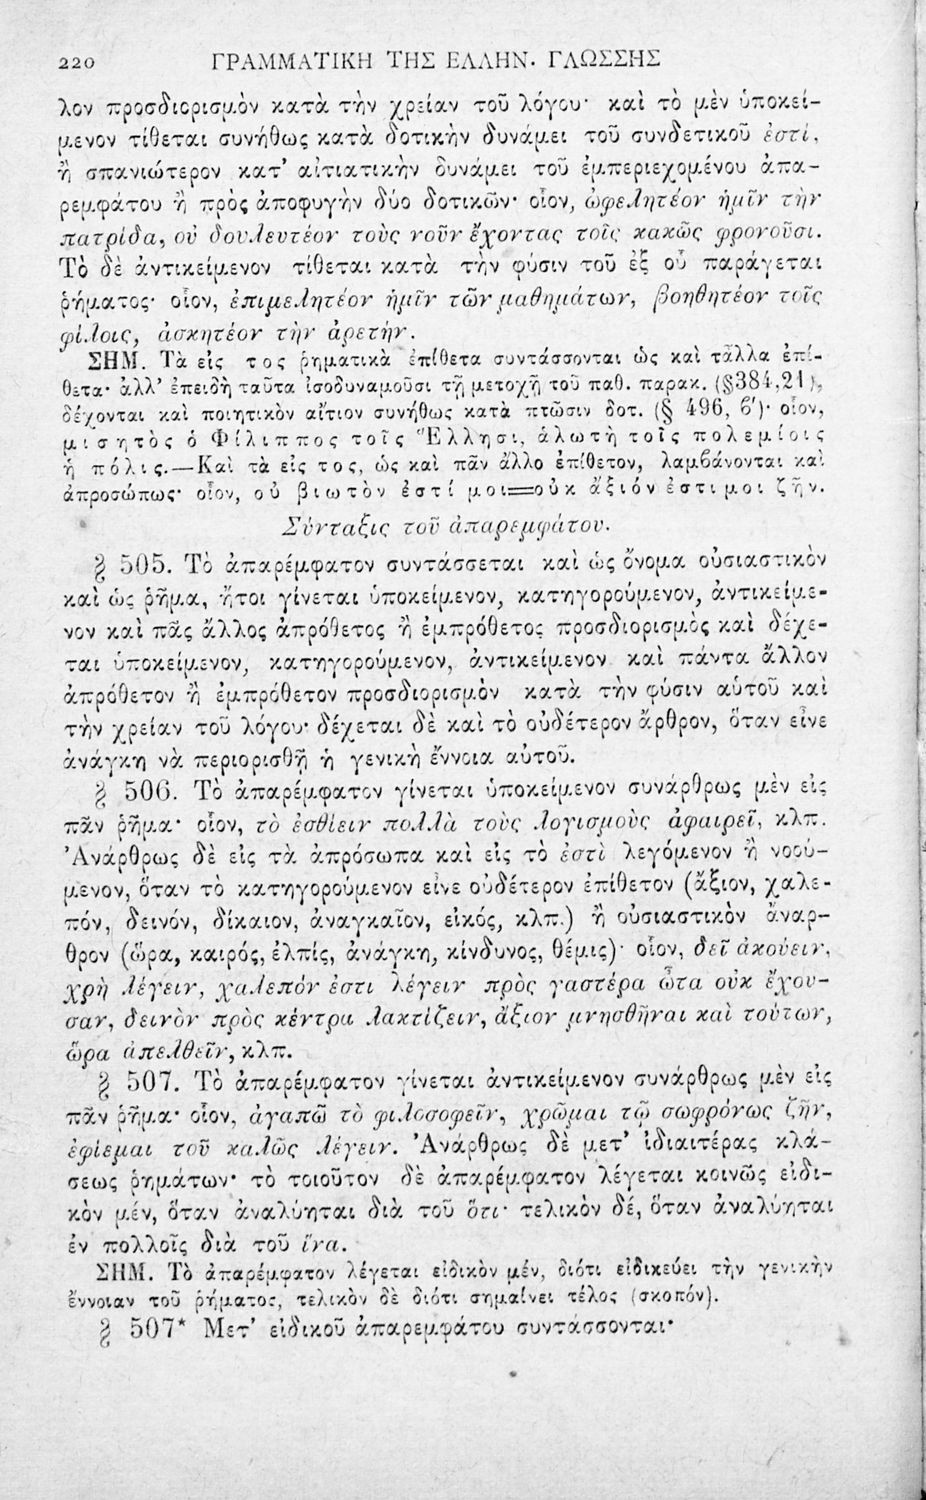 220 ΓΡΑΜΜΑΤΙΚΗ ΤΗΣ ΕΛΛΗΝ. ΓΛΩΣΣΗΣ
λον προσδιορισμὸν κατὰ τὴν χρείαν τοῦ λόγου· καὶ τὸ μὲν ὑποκεί-
μενον τίθεται συνήθως κατὰ δοτικὴν δυνάμει τοῦ συνδετικοῦ ἐστί,
ἢ σπανιώτερον κατ’ αἰτιατικὴν δυνάμει τοῦ ἐμπεριεχομένου ἀπα-
ρεμφάτου ἢ πρὸς ἀποφυγὴν δύο δοτικῶν· οἷον, ὠφελητέον ἡμῖν τὴν
πατρίδα, οὐ δουλευτέον τοὺς νοῦν ἔχοντας τοῖς κακῶς φρονοῦσι.
Τὸ δὲ ἀντικείμενον τίθεται κατὰ τὴν φύσιν τοῦ ἐξ οὗ παράγεται
ῥήματος· οἷον, ἐπιμελητέον ἡμῖν τῶν μαθημάτων, βοηθητέον τοῖς
φίλοις, ἀσκητέον τὴν ἀρετήν.
ΣΗΜ. Τὰ εἰς τος ῥηματικὰ ἐπίθετα συντάσσονται ὡς καὶ τἆλλα ἐπί-
θετα· ἀλλ’ ἐπειδὴ ταῦτα ἰσοδυναμοῦσι τῇ μετοχῇ τοῦ παθ. παρακ. (§384,21),
δέχονται καὶ ποιητικὸν αἴτιον συνήθως κατὰ πτῶσιν δοτ. (§ 496, ϐ′)· οἷον,
μισητὸς ὁ Φίλιππος τοῖς Ἕλλησι, ἁλωτὴ τοῖς πολεμίοις
ἡ πόλις.—Καὶ τὰ εἰς τος, ὡς καὶ πᾶν ἄλλο ἐπίθετον, λαμϐάνονται καὶ
ἀπροσώπως· οἷον, οὐ βιωτὸν ἐστί μοι=οὐκ ἄξιόν ἐστι μοι ζῆν.
Σύνταξις τοῦ ἀπαρεμφάτου.
§ 505. Τὸ ἀπαρέμφατον συντάσσεται καὶ ὡς ὄνομα οὐσιαστικὸν
καὶ ὡς ῥῆμα, ἤτοι γίνεται ὑποκείμενον, κατηγορούμενον, ἀντικείμε-
νον καὶ πᾶς ἄλλος ἀπρόθετος ἢ ἐμπρόθετος προσδιορισμὸς καὶ δέχε-
ται ὑποκείμενον, κατηγορούμενον, ἀντικείμενον καὶ πάντα ἄλλον
ἀπρόθετον ἢ ἐμπρόθετον προσδιορισμὸν κατὰ τὴν φύσιν αὑτοῦ καὶ
τὴν χρείαν τοῦ λόγου· δέχεται δὲ καὶ τὸ οὐδέτερον ἄρθρον, ὅταν εἶνε
ἀνάγκη νὰ περιορισθῇ ἡ γενικὴ ἔννοια αὐτοῦ.
§ 506. Τὸ ἀπαρέμφατον γίνεται ὑποκείμενον συνάρθρως μὲν εἰς
πᾶν ῥῆμα· οἷον, τὸ ἐσθίειν πολλὰ τοὺς λογισμοὺς ἀφαιρεῖ, κλπ.
Ἀνάρθρως δὲ εἰς τὰ ἀπρόσωπα καὶ εἰς τὸ ἐστὶ λεγόμενον ἢ νοού-
μενον, ὅταν τὸ κατηγορούμενον εἶνε οὐδέτερον ἐπίθετον (ἄξιον, χαλε-
πόν, δεινόν, δίκαιον, ἀναγκαῖον, εἰκός, κλπ.) ἢ οὐσιαστικὸν ἄναρ-
θρον (ὥρα, καιρός, ἐλπίς, ἀνάγκη, κίνδυνος, θέμις)· οἷον, δεῖ ἀκούειν,
χρὴ λέγειν, χαλεπόν ἐστι λέγειν πρὸς γαστέρα ὦτα οὐκ ἔχου-
σαν, δεινὸν πρὸς κέντρα λακτίζειν, ἄξιον μνησθῆναι καὶ τούτων,
ὥρα ἀπελθεῖν, κλπ.
§ 507. Τὸ ἀπαρέμφατον γίνεται ἀντικείμενον συνάρθρως μὲν εἰς
πᾶν ῥῆμα· οἷον, ἀγαπῶ τὸ φιλοσοφεῖν, χρῶμαι τῷ σωφρόνως ζῆν,
ἐφίεμαι τοῦ καλῶς λέγειν. Ἀνάρθρως δὲ μετ’ ἰδιαιτέρας κλά-
σεως ῥημάτων· τὸ τοιοῦτον δὲ ἀπαρέμφατον λέγεται κοινῶς εἰδι-
κὸν μέν, ὅταν ἀναλύηται διὰ τοῦ ὅτι· τελικὸν δέ, ὅταν ἀναλύηται
ἐν πολλοῖς διὰ τοῦ ἵνα.
ΣΗΜ. Τὸ ἀπαρέμφατον λέγεται εἰδικὸν μέν, διότι εἰδικεύει τὴν γενικὴν
ἔννοιαν τοῦ ῥήματος, τελικὸν δὲ διότι σημαίνει τέλος (σκοπόν).
§ 507* Μετ’ εἰδικοῦ ἀπαρεμφάτου συντάσσονται·